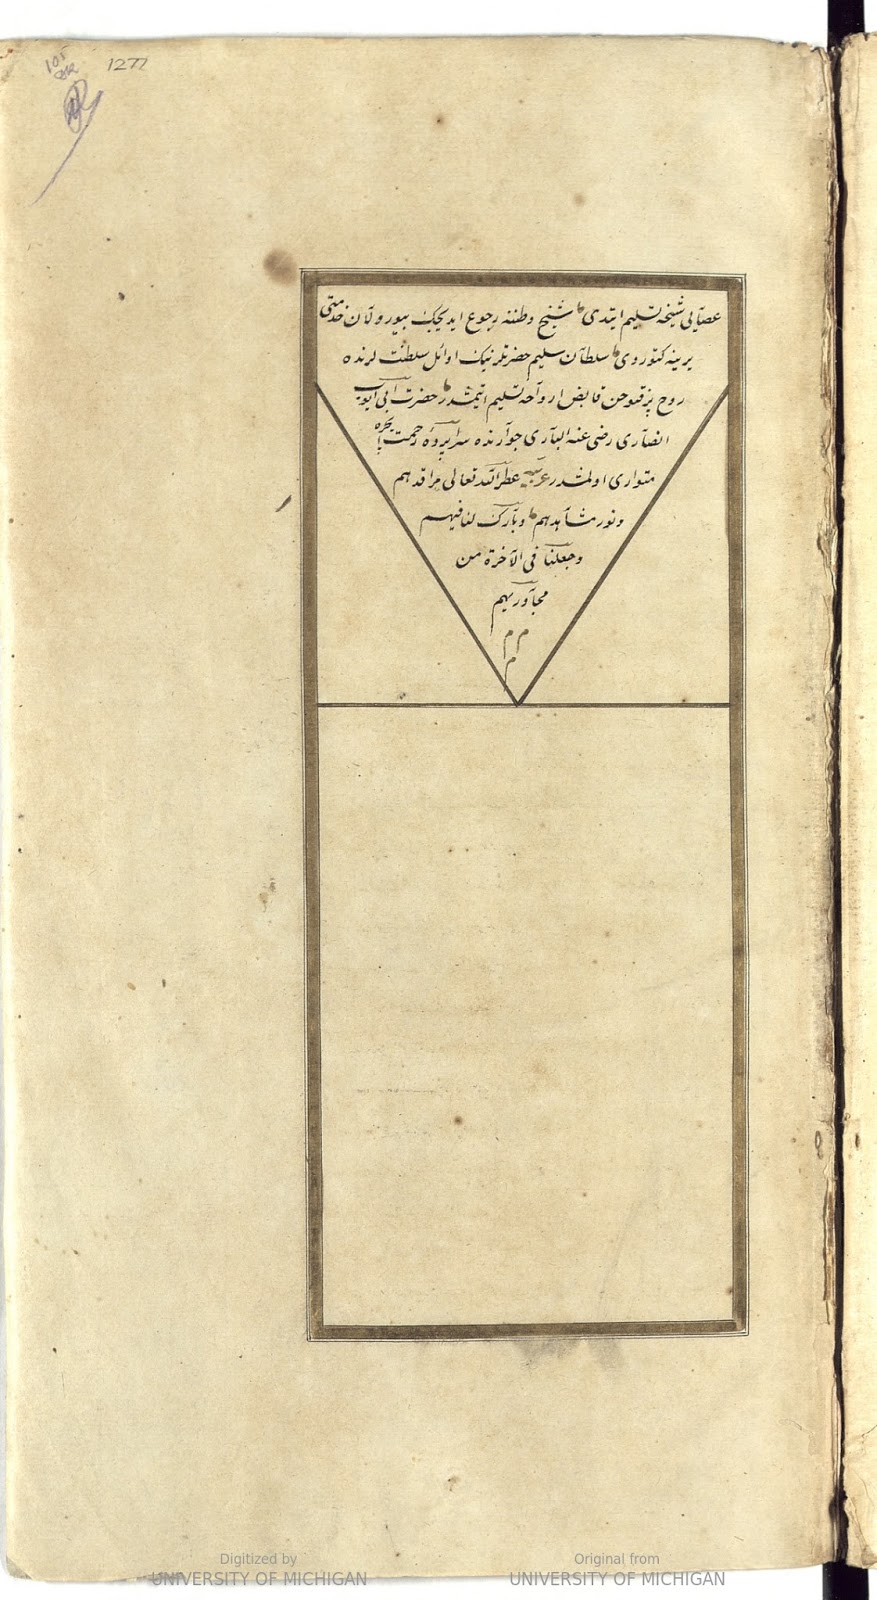 1277
عصايى شيخه تسليم ايتدى شيخ وطننه رجوع ايديجك بيورولان خدمتى
يرينه كتوردى سلطان سليم حضرتلرينك اوائل سلطنت لرنده
روح پرفتوحن قابض ارواحه تسليم ايتمشدر حضرت ابى ايوب
انصارى رضى عنه البارى جوارنده سراپرده رحمت
متوارى اولمشدر عربيه عطر الله تعالى مراقدهم
ونور مشاهدهم وبارك لنا فيهم
وجعلنا فى الآخرة من
مجاوريهم
م م
م
Digitized by
UNIVERSITY OF MICHIGAN
Original from
UNIVERSITY OF MICHIGAN